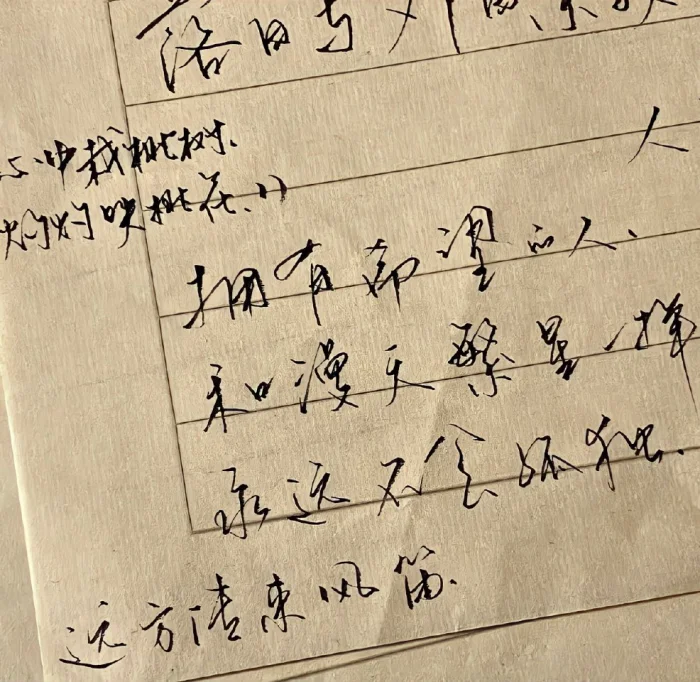 落日与
心中栽桃树.
灼灼 桃花.))
人
拥有希望的人、
和漫天繁星一样
永远不会孤独.
远方传来风笛.